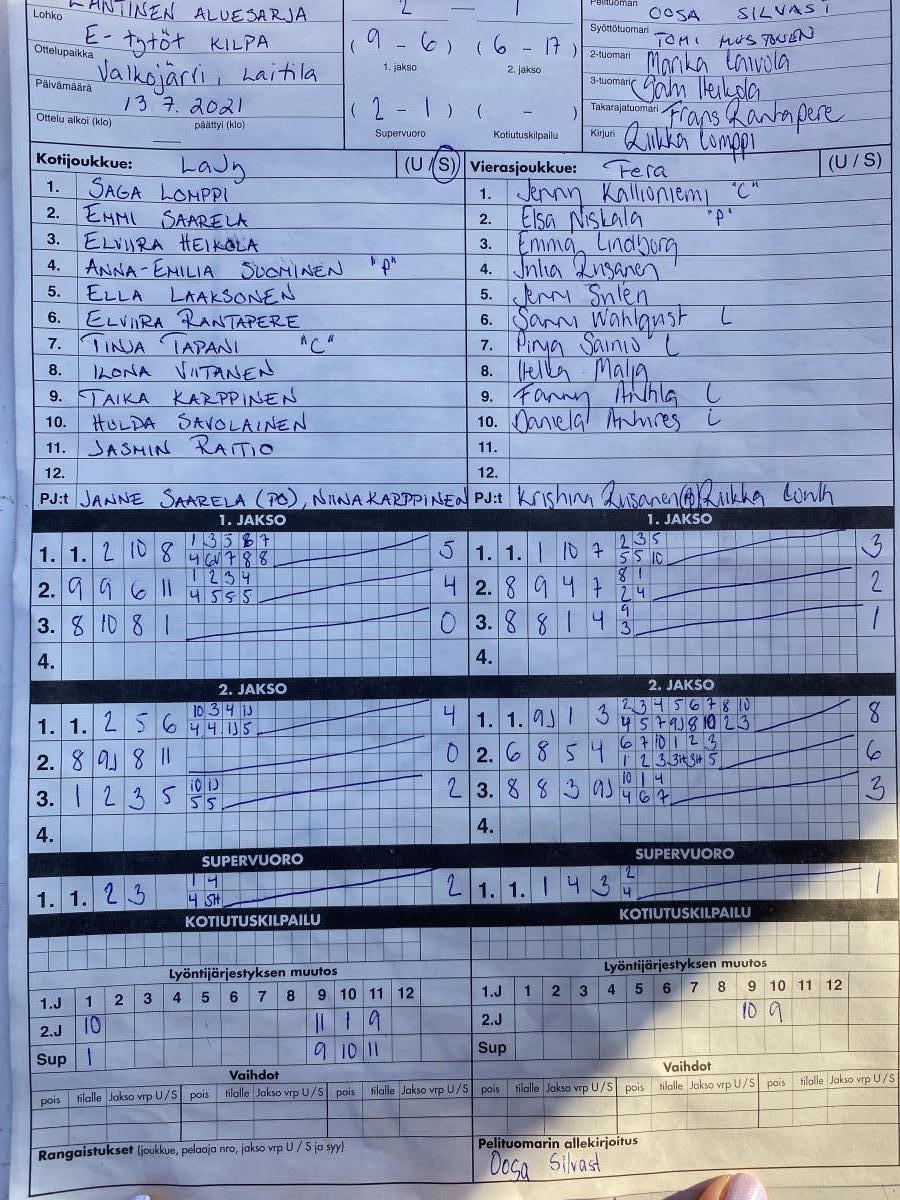 Lohko LÄNTINEN ALUESARJA
E-tytöt KILPA
Ottelupaikka Valkojärvi, Laitila
Päivämäärä 13.7.2021
Ottelu alkoi (klo) päättyi (klo)
2 — 1
(9 - 6) (6 - 17)
1. jakso 2. jakso
(2 - 1) ( - )
Supervuoro Kotiutuskilpailu
Pelituomari OOSA SILVAST
Syöttötuomari TOMI MUSTONEN
2-tuomari Marika Laivola
3-tuomari Heikola
Takarajatuomari Frans Rantapere
Kirjuri Riikka Lomppi
Kotijoukkue: LaJy (U / S)
1. SAGA LOMPPI
2. EMMI SAARELA
3. ELVIIRA HEIKOLA
4. ANNA-EMILIA SUOMINEN "P"
5. ELLA LAAKSONEN
6. ELVIIRA RANTAPERE
7. TINJA TAPANI "C"
8. ILONA VIITANEN
9. TAIKA KARPPINEN
10. HULDA SAVOLAINEN
11. JASMIN RAITIO
12.
PJ:t JANNE SAARELA (PO), NIINA KARPPINEN
Vierasjoukkue: Fera (U / S)
1. Jenny Kallioniemi "C"
2. Elsa Niskala "P"
3. Emma Lindborg
4. Julia Rusanen
5. Jenni Sulén
6. Sanni Wahlqvist L
7. Pinja Sainio L
8. Hella Malja
9. Fanny L
10. Daniela L
11.
12.
PJ:t Krishna Rusanen Riikka
1. JAKSO
1. 1. 2 10 8 1 3 5 6 7 5
4 6V 7 8 8
2. 9 9 6 11 1 2 3 4 4
4 5 5 5
3. 8 10 8 1 0
4.
1. JAKSO
1. 1. 1 10 7 2 3 5 3
5 5 10
2. 8 9 4 7 8 1 2
2 4
3. 8 8 1 4 9 1
3
4.
2. JAKSO
1. 1. 2 5 6 10 3 4 1J 4
4 4 1J 5
2. 8 9J 8 11 0
3. 1 2 3 5 10 1J 2
5 5
4.
2. JAKSO
1. 1. 9J 1 3 2 3 4 5 6 7 8 10 8
4 5 7 9J 8 10 2 3
2. 6 8 5 4 6 7 10 1 2 3 6
1 2 3 3H 3H 5
3. 8 8 3 9J 10 1 4 3
4 6 7
4.
SUPERVUORO
1. 1. 2 3 1 4 2
4 5H
SUPERVUORO
1. 1. 1 4 3 2 1
4
KOTIUTUSKILPAILU
KOTIUTUSKILPAILU
Lyöntijärjestyksen muutos
1.J 1 2 3 4 5 6 7 8 9 10 11 12
2.J 10 11 1 9
Sup 1 9 10 11
Lyöntijärjestyksen muutos
1.J 1 2 3 4 5 6 7 8 9 10 11 12
2.J 10 9
Sup
Vaihdot
pois tilalle Jakso vrp U / S pois tilalle Jakso vrp U / S pois tilalle Jakso vrp U / S
Vaihdot
pois tilalle Jakso vrp U / S pois tilalle Jakso vrp U / S pois tilalle Jakso vrp U / S
Rangaistukset (joukkue, pelaaja nro, jakso vrp U / S ja syy)
Pelituomarin allekirjoitus
Oosa Silvast